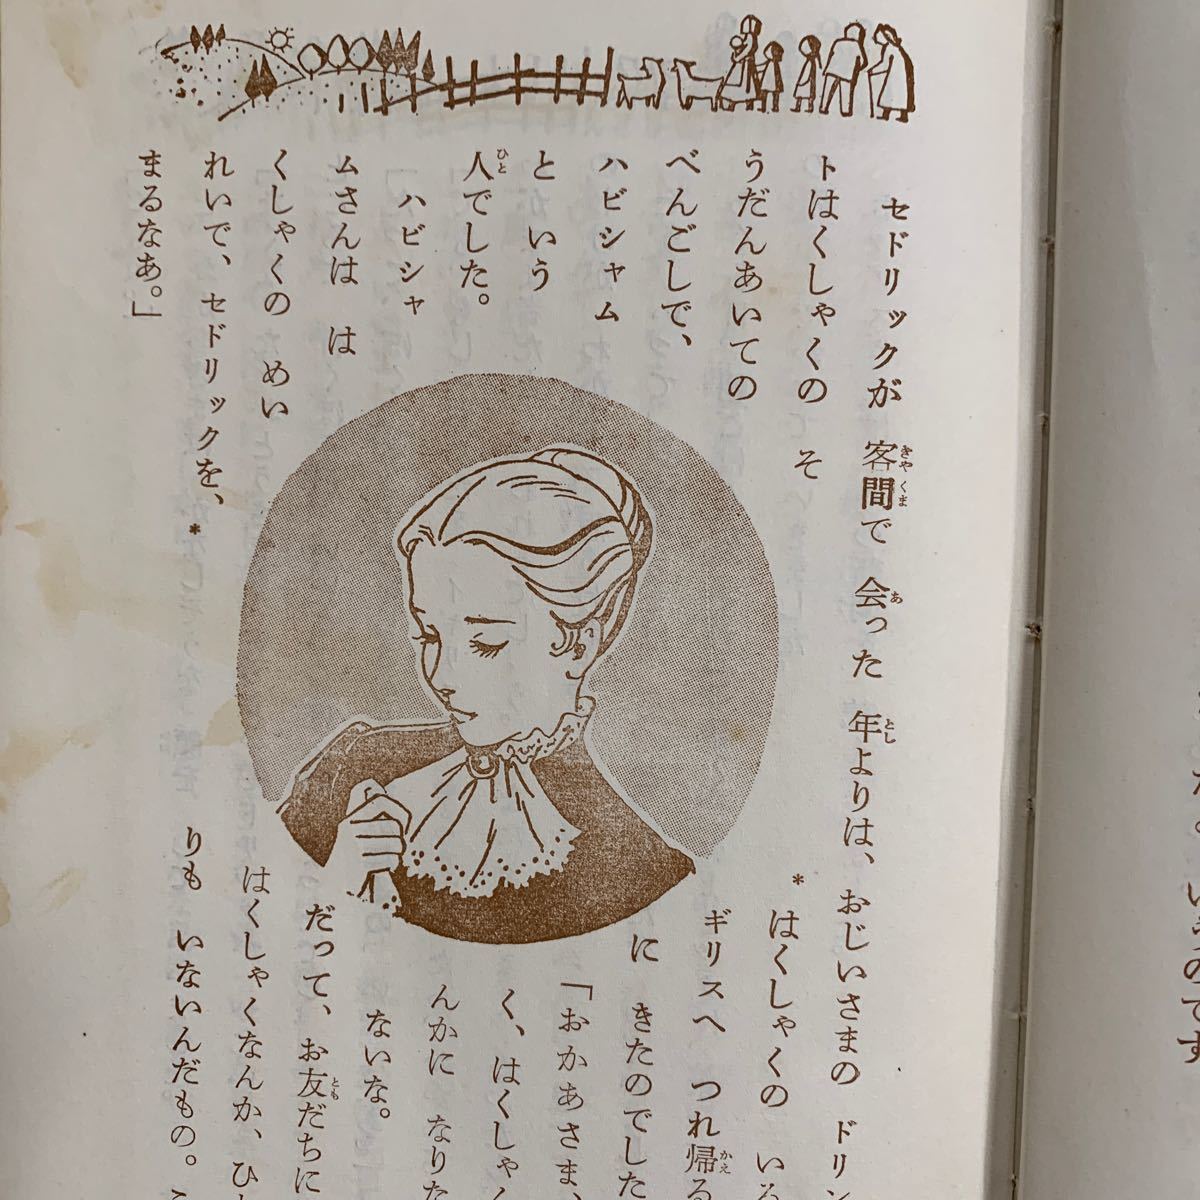 セドリックが 客間で 会った 年よりは、おじいさまの ドリン
トはくしゃくの そ
うだんあいての
べんごしで、
ハビシャム
という
人でした。
ハビシャ
ムさんは は
くしゃくの めい
れいで、セドリックを、
*はくしゃくの いる
ギリスへ つれ帰る
に きたのでした
「おかあさま、
く、はくしゃく
んかに なりた
ないな。
だって、お友だちに
はくしゃくなんか、ひと
りも いないんだもの。こ
まるなあ。」